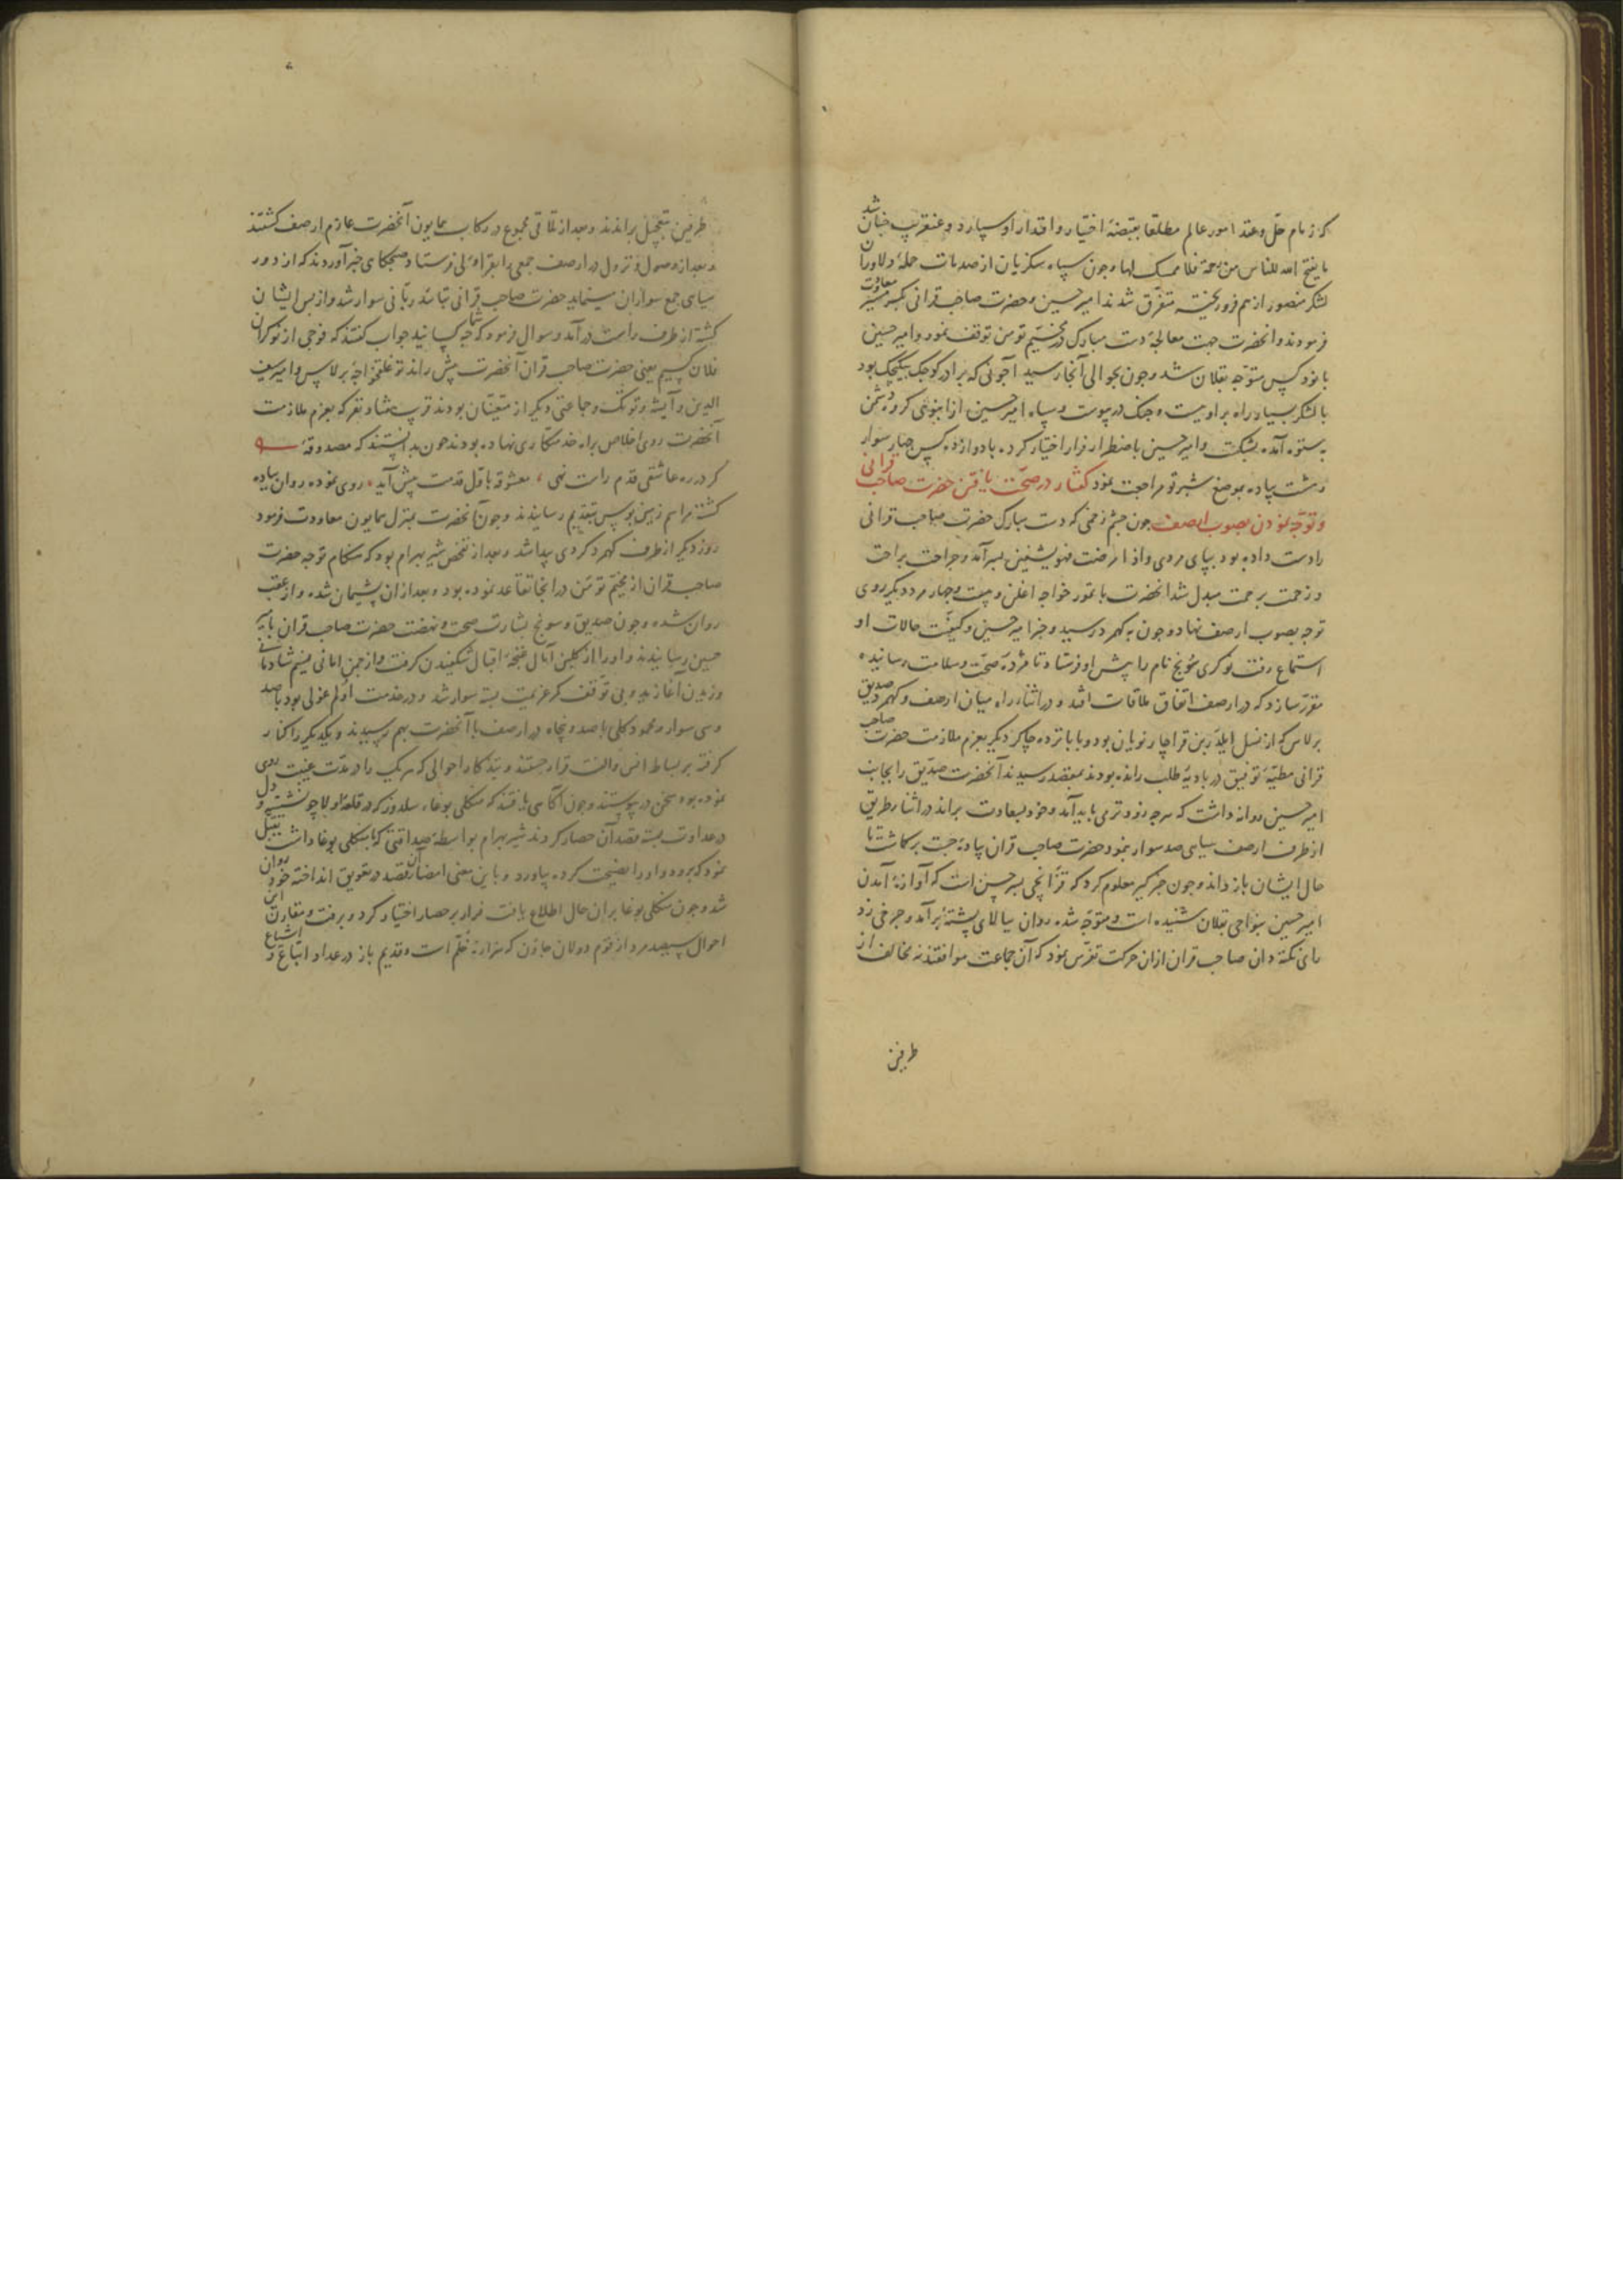 که زمام حل و عقد امور عالم مطلقا بقبضهٔ اختیار و اقتدار او سپارد و عنقریب چنان شد
ما یفتح الله للناس من رحمة فلا ممسک لها و چون سپاه سکزیان از صدمات حملهٔ دلاوران
لشکر منصور از هم فرو ریخته متفرق شدند امیر حسین و حضرت صاحب قرانی بکرمسیر معاودت
فرمودند و آنحضرت جهت معالجهٔ دست مبارک در مخیم تومن توقف نمود و امیر حسین
با نود کس متوجه بقلان شد و چون بحوالی آنجا رسید آجونی که برادر کوجک بیکجک بود
با لشکر بسیار راه بر او بست و جنک در پیوست و سپاه امیر حسین از انبوهی کروه دشمن
به ستوه آمده بشکست و امیر حسین باضطرار فرار اختیار کرد و با دوازده کس چهار سوار
و هشت پیاده بموضع شبرتو مراجعت نمود کفتار در صحت یافتن حضرت صاحب قرانی
و توجه نمودن بصوب ارصف چون چشم زخمی که دست مبارک حضرت صاحب قرانی
را دست داده بود بپای مردی و اذا مرضت فهو یشفین بسر آمد و جراحت براحت
و زحمت برحمت مبدل شد آنحضرت با تمور خواجه اغلن و بیست و چهار مرد دیکر روی
توجه بصوب ارصف نهاد و چون به کهمرد رسید و خبر امیر حسین و کیفیت حالات او
استماع رفت نوکری سونج نام را پیش او فرستاد تا مژدهٔ صحت و سلامت رسانیده
مقرر سازد که در ارصف اتفاق ملاقات افتد و در اثناء راه میان ارصف و کهمرد صدیق
برلاس که از نسل ایلدر بن قراچار نویان بود و با پانزده چاکر دیکر بعزم ملازمت حضرت صاحب
قرانی مطیهٔ توفیق در بادیهٔ طلب رانده بودند بمقصد رسیدند آنحضرت صدیق را بجانب
امیر حسین روانه داشت که هرچه زودتر می باید آمد و خود بسعادت براند در اثناء طریق
از طرف ارصف سیاهی صد سوار نمود حضرت صاحب قران پیادهٔ چست بر کماشت تا
حال ایشان باز داند و چون خبرکیر معلوم کرد که قزانچی پسر حسن است که آوازهٔ آمدن
امیر حسین بنواحی بقلان شنیده است و متوجه شده روان ببالای پشتهٔ برآمد و چرخی زد
رای نکته دان صاحب قران از آن حرکت تفرس نمود که آن جماعت موافقند نه مخالف از
طرفین
طرفین بتعجیل براندند و بعد از تلاقی مجموع در رکاب همایون آنحضرت عازم ارصف کشتند
و بعد از وصول و نزول در ارصف جمعی را بقراولی فرستاد و صبحکاهی خبر آوردند که از دور
سیاهی جمع سواران مینماید حضرت صاحب قرانی بتائید ربانی سوار شد و از پس ایشان
کشته از طرف راست درآمد و سوال فرمود که شما چه کسانید جواب کفتند که فوجی از نوکران
فلان کسیم یعنی حضرت صاحب قران آنحضرت پیش راند تو غلقخواجهٔ برلاس و امیر سیف
الدین و آیشه و توتک و جماعتی دیکر از متعینان بودند قرب هفتاد نفر که بعزم ملازمت
آنحضرت روی اخلاص براه خدمتکاری نهاده بودند چون بدانستند که مصدوقهٔ
کر در ره عاشقی قدم راست نهی معشوقه باول قدمت پیش آید روی نموده روان پیاده
کشته مراسم زمین بوس بتقدیم رسانیدند و چون آنحضرت بمنزل همایون معاودت فرمود
روز دیکر از طرف کهمرد کردی پیدا شد و بعد از تفحص شیر بهرام بود که هنکام توجه حضرت
صاحب قران از مخیم تومن در آنجا تقاعد نموده بود و بعد از آن پشیمان شده و از عقب
روان شده و چون صدیق و سونج بشارت صحت و نهضت حضرت صاحب قران بامیر
حسین رسانیدند و او را از کلبن آمال غنچهٔ اقبال شکفیدن کرفت و از چمن امانی نسیم شادمانی
وزیدن آغازید و بی توقف کمر عزیمت بسته سوار شد و در خدمت اولم غولی بود با صد
و سی سوار و محمود کلی با صد و پنجاه در ارصف با آنحضرت بهم رسیدند و یکدیکر را کنار
کرفته بر بساط انس و الفت قرار جستند و بتذکار احوالی که هر یک را در مدت غیبت روی
نموده بود سخن در پیوستند و چون آکاهی یافتند که منکلی بوغاء سلدوز که در قلعهٔ اولاجو نشسته و دل
در عداوت بسته قصد آن حصار کردند شیر بهرام بواسطهٔ صداقتی که با منکلی بوغا داشت تقبل
نمود که برود و او را نصیحت کرده بیاورد و باین معنی امضاء آن قصد در تعویق انداخته خود روان
شد و چون منکلی بوغا بر آن حال اطلاع یافت فرار بر حصار اختیار کرد و برفت و مقارن این
احوال سیصد مرد از قوم دولان جاون که هزارهٔ خلم است و قدیم باز در عداد اتباع و اشیاع